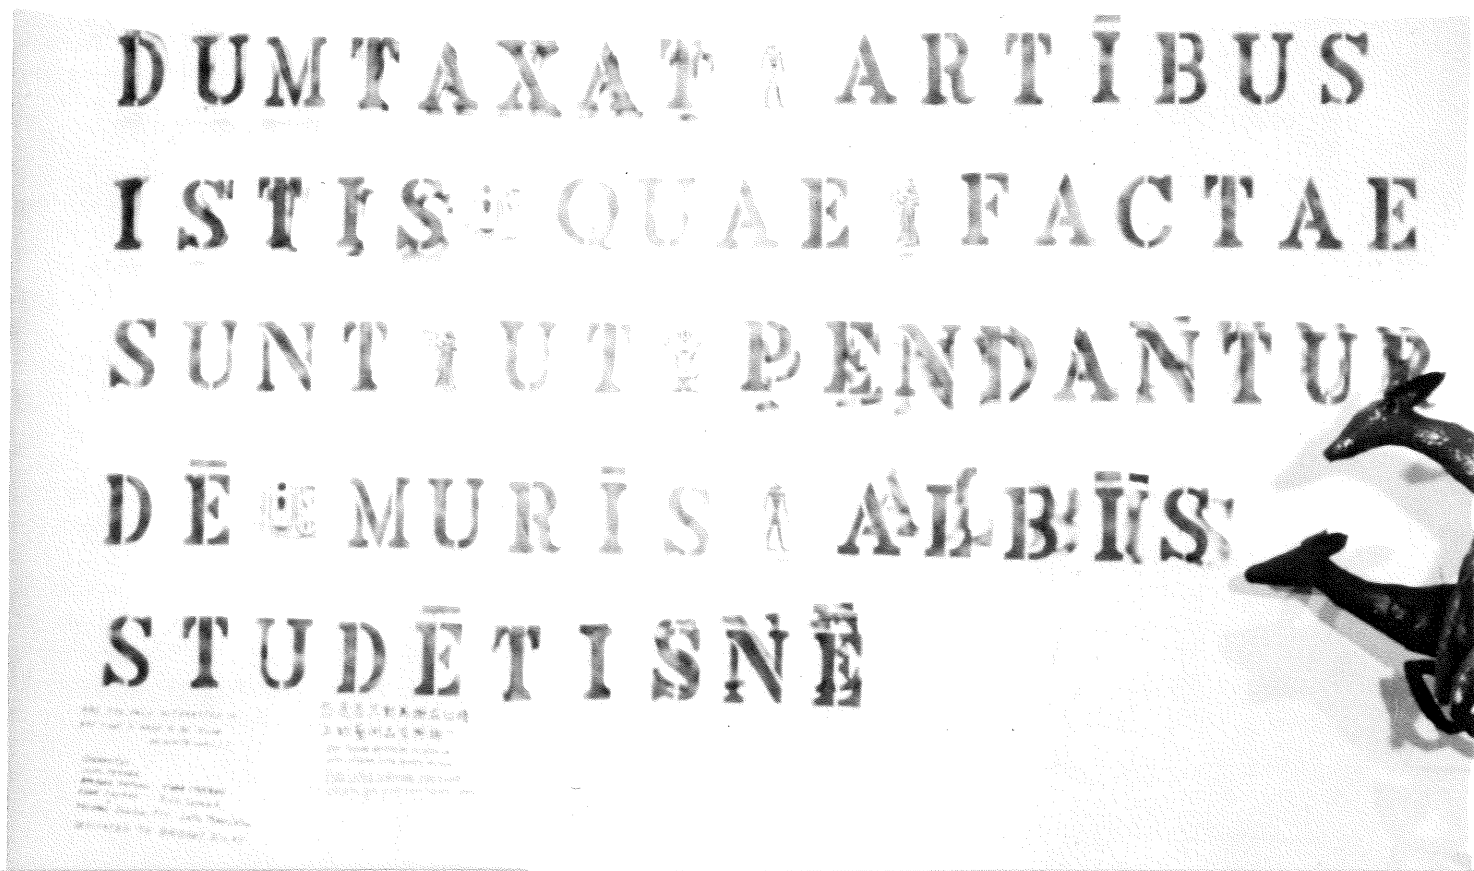 DUMTAXAT ARTĪBUS
ISTIS QUAE FACTAE
SUNT UT PENDANTUR
DĒ MURĪS ALBĪS
STUDĒTISNE